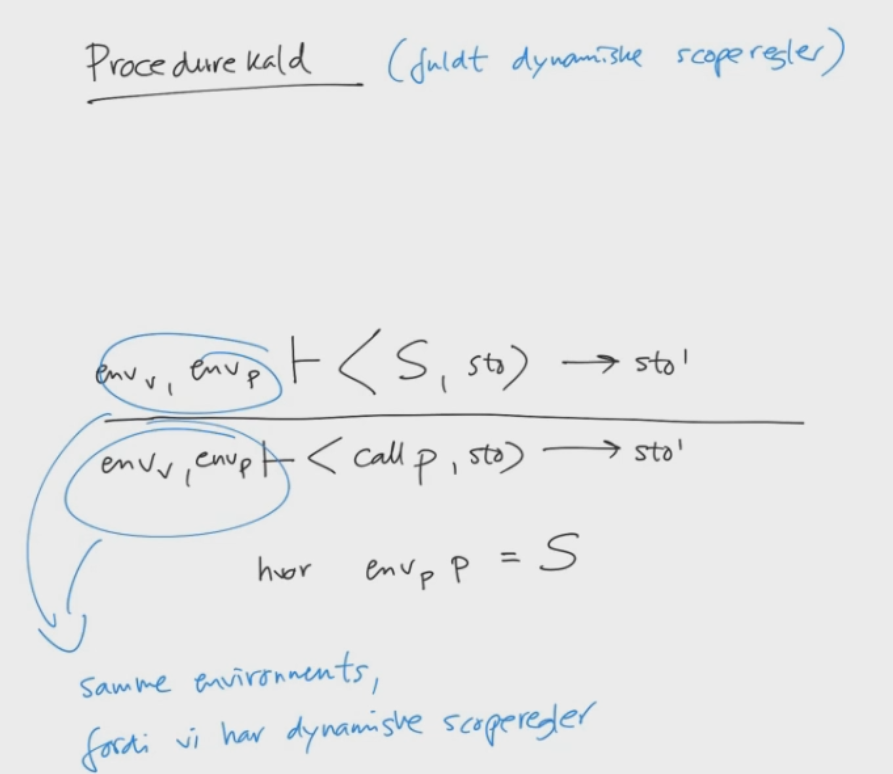 Procedurekald (fuldt dynamiske scoperegler)
env_v, env_p ⊢ < S, sto> → sto'
env_v, env_p ⊢ < call p, sto> → sto'
hvor env_p p = S
samme environments,
fordi vi har dynamiske scoperegler